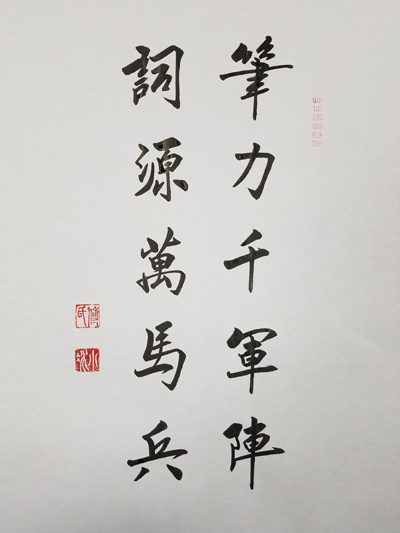 筆力千軍陣
詞源萬馬兵